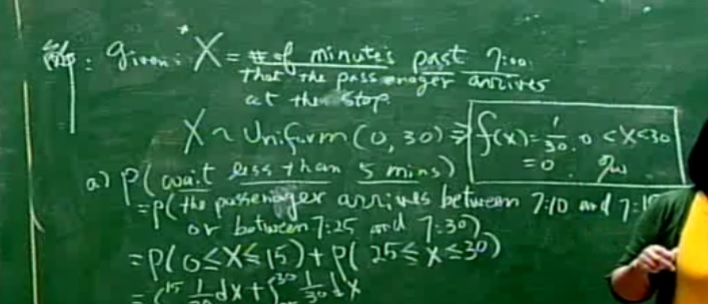 例: Given: X = # of minutes past 7:00
that the passenager arrives
at the stop.
X ~ Uniform (0, 30) ⇒ f(x) = 1/30, 0 < x < 30
= 0
a) P(wait less than 5 mins)
= P(the passenager arrives between 7:10 and 7:15
or between 7:25 and 7:30)
= P(0 ≤ X ≤ 15) + P(25 ≤ X ≤ 30)
dx + ∫ 1/30 dx